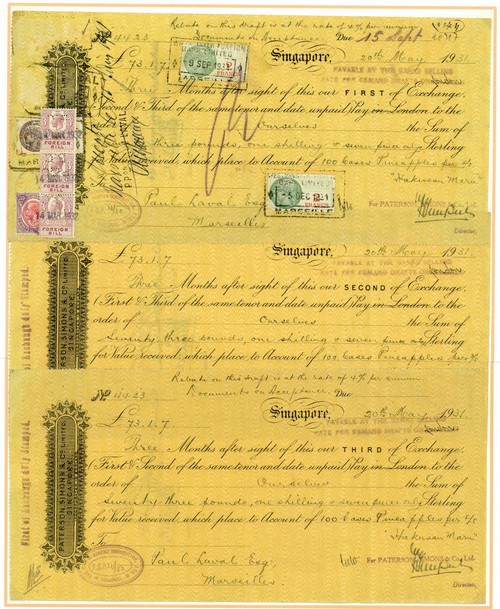 Rebate on this draft is at the rate of 4% per annum
No 4423 Documents on Acceptance Due 15 Sept
£73.1.7. Singapore, 20th May 1931
PAYABLE AT THE BANKS SELLING
RATE FOR DEMAND DRAFTS ON LONDON
9 SEP 1931
MARSEILLE
Three Months after sight of this our FIRST of Exchange,
Second & Third of the same tenor and date unpaid Pay in London to the
Ourselves the Sum of
three pounds, one shilling & seven pence only Sterling
received, which place to Account of 100 cases Pineapples per S/S
Hakusan Maru
FOREIGN BILL
FOREIGN BILL
FOREIGN BILL
14 MAR 1932
DEC 1931
MARSEILLE
Paul Laval
Marseilles
For PATERSON, SIMONS & Co., Ltd.
Director.
£73.1.7 Singapore, 20th May 1931
PAYABLE AT THE BANKS SELLING
RATE FOR DEMAND DRAFTS ON LONDON
Three Months after sight of this our SECOND of Exchange
(First & Third of the same tenor and date unpaid Pay in London to the
order of Ourselves the Sum of
Seventy three pounds, one shilling & seven pence only Sterling
for Value received, which place to Account of 100 cases Pineapples per S/S
First of Exchange duly Stamped.
PATERSON, SIMONS & CO. LIMITED.
SINGAPORE.
Rebate on this draft is at the rate of 4% per annum
No 4423 Documents on Acceptance Due
£73.1.7. Singapore, 20th May 1931.
PAYABLE AT THE BANKS SELLING
RATE FOR DEMAND DRAFTS ON LONDON
Three Months after sight of this our THIRD of Exchange
(First & Second of the same tenor and date unpaid Pay in London to the
order of Ourselves the Sum of
Seventy three pounds, one shilling & seven pence only Sterling
for Value received, which place to Account of 100 cases Pineapples per S/S
Hakusan Maru
To
Paul Laval Esq:
Marseilles
For PATERSON, SIMONS & Co., Ltd.
Director.
First of Exchange duly Stamped.
PATERSON, SIMONS & CO. LIMITED.
SINGAPORE.